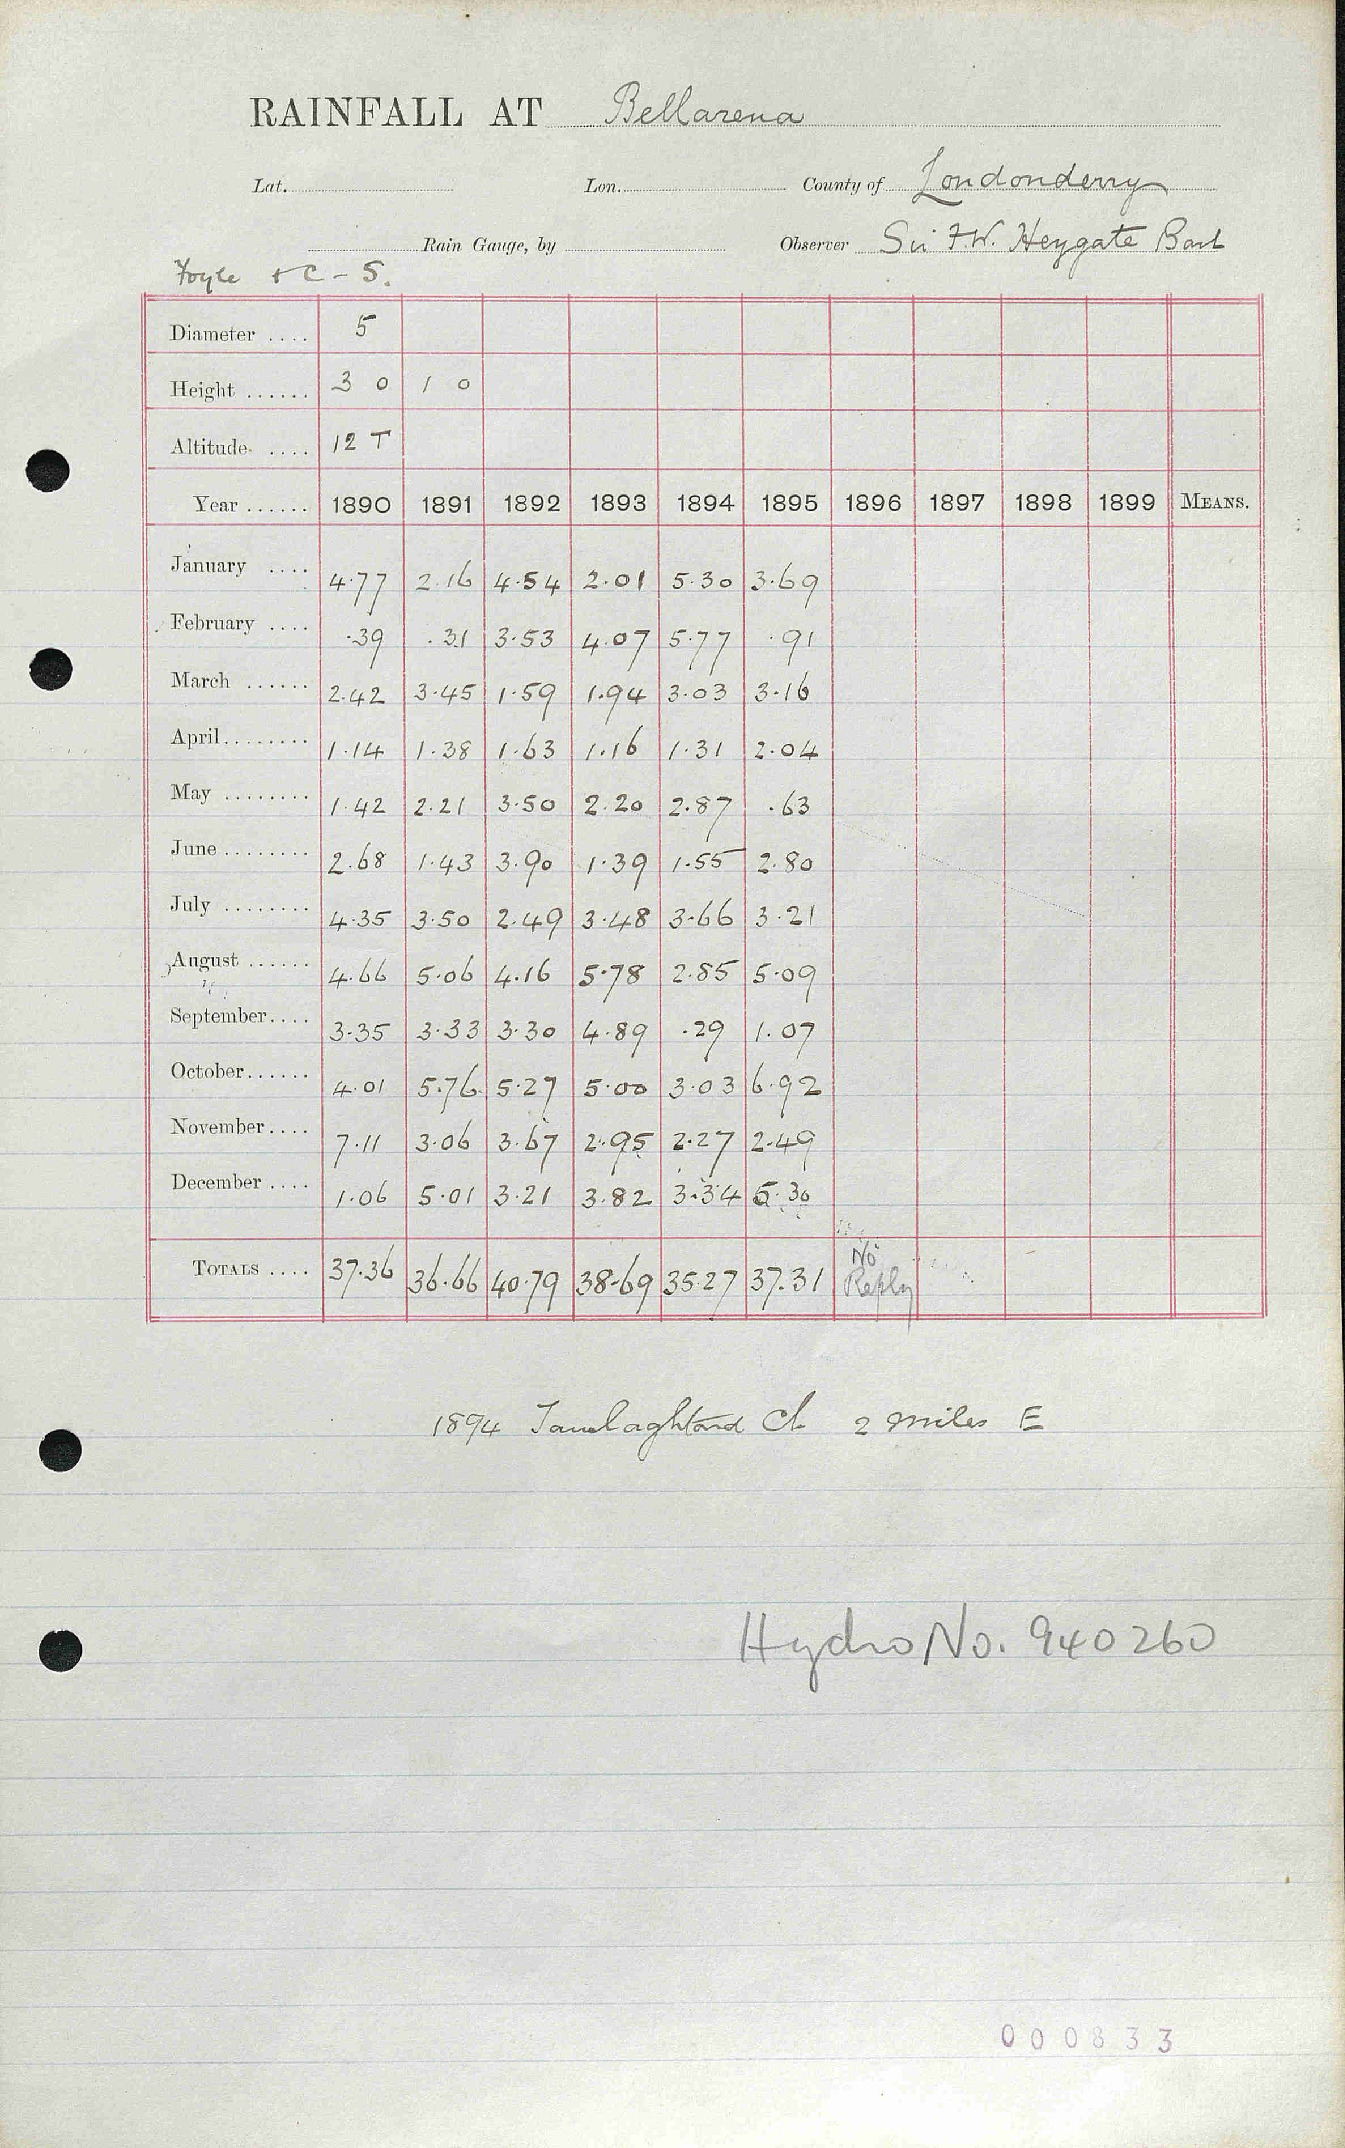 RAINFALL AT Bellarena
Lat. Lon. County of Londonderry
Rain Gauge, by Observer Sir F.W. Heygate Bart
Foyle & C - 5.
Diameter .... 5
Height ...... 3 0 1 0
Altitude .... 12 T
Year ...... 1890 1891 1892 1893 1894 1895 1896 1897 1898 1899 MEANS.
January .... 4.77 2.16 4.54 2.01 5.30 3.69
February .... .39 .31 3.53 4.07 5.77 .91
March ...... 2.42 3.45 1.59 1.94 3.03 3.16
April........ 1.14 1.38 1.63 1.16 1.31 2.04
May ........ 1.42 2.21 3.50 2.20 2.87 .63
June ........ 2.68 1.43 3.90 1.39 1.55 2.80
July ........ 4.35 3.50 2.49 3.48 3.66 3.21
August ...... 4.66 5.06 4.16 5.78 2.85 5.09
September.... 3.35 3.33 3.30 4.89 .29 1.07
October...... 4.01 5.76 5.27 5.00 3.03 6.92
November.... 7.11 3.06 3.67 2.95 2.27 2.49
December .... 1.06 5.01 3.21 3.82 3.34 5.30
TOTALS .... 37.36 36.66 40.79 38.69 35.27 37.31 No Reply
1894 Tamlaghtard Ch 2 miles E
Hydro No. 940260
000833